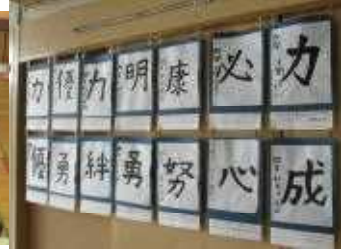 力 優 力 明 康 必 力
優 勇 絆 勇 努 心 成